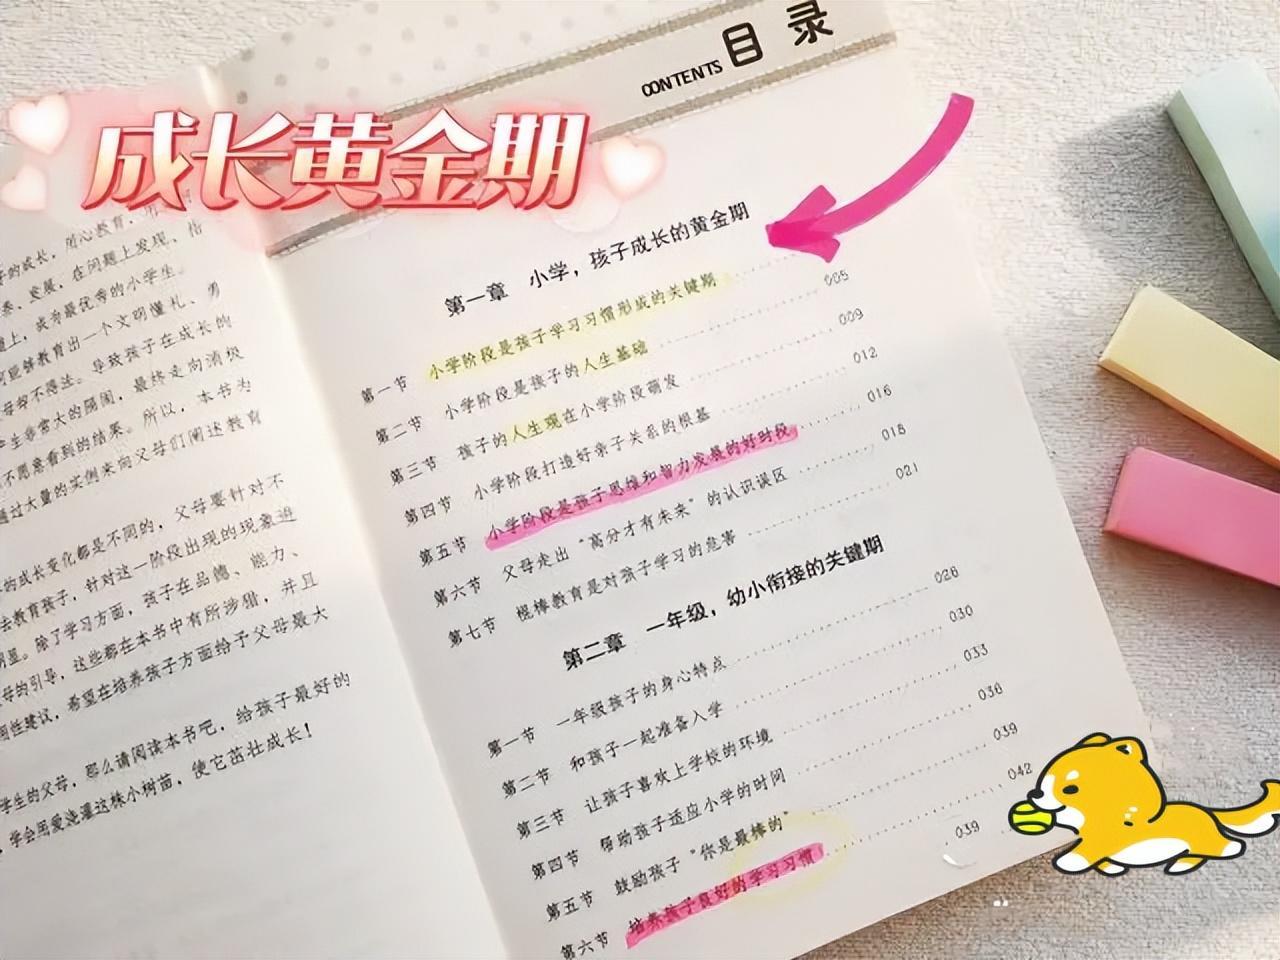 成长黄金期
CONTENTS 目录
的成长，用心教育，用
养、发展，在问题上发现、指
上，成为最优秀的小学生。
何能够教育出一个文明懂礼、勇
母却不得法。导致孩子在成长的
生非常大的阻闹，最终走向消极
不愿意看到的结果。所以，本书为
通过大量的实例来向父母们阐述教育
的成长变化都是不同的，父母要针对不
去教育孩子，针对这一阶段出现的现象进
明显。除了学习方面，孩子在品德、能力、
母的引导，这些都在本书中有所涉猎，并且
用性建议，希望在培养孩子方面给予父母最大
学生的父母，那么请阅读本书吧，给孩子最好的
学会用爱浇灌这株小树苗，使它茁壮成长！
第一章 小学，孩子成长的黄金期
第一节 小学阶段是孩子学习习惯形成的关键期 005
第二节 小学阶段是孩子的人生基础 009
第三节 孩子的人生观在小学阶段萌发 012
第四节 小学阶段打造好亲子关系的根基 016
第五节 小学阶段是孩子思维和智力发展的好时段 018
第六节 父母走出“高分才有未来”的认识误区 021
第七节 棍棒教育是对孩子学习的危害
第二章 一年级，幼小衔接的关键期
第一节 一年级孩子的身心特点 026
第二节 和孩子一起准备入学 030
第三节 让孩子喜欢上学校的环境 033
第四节 帮助孩子适应小学的时间 036
第五节 鼓励孩子“你是最棒的” 039
第六节 培养孩子良好的学习习惯 042
039